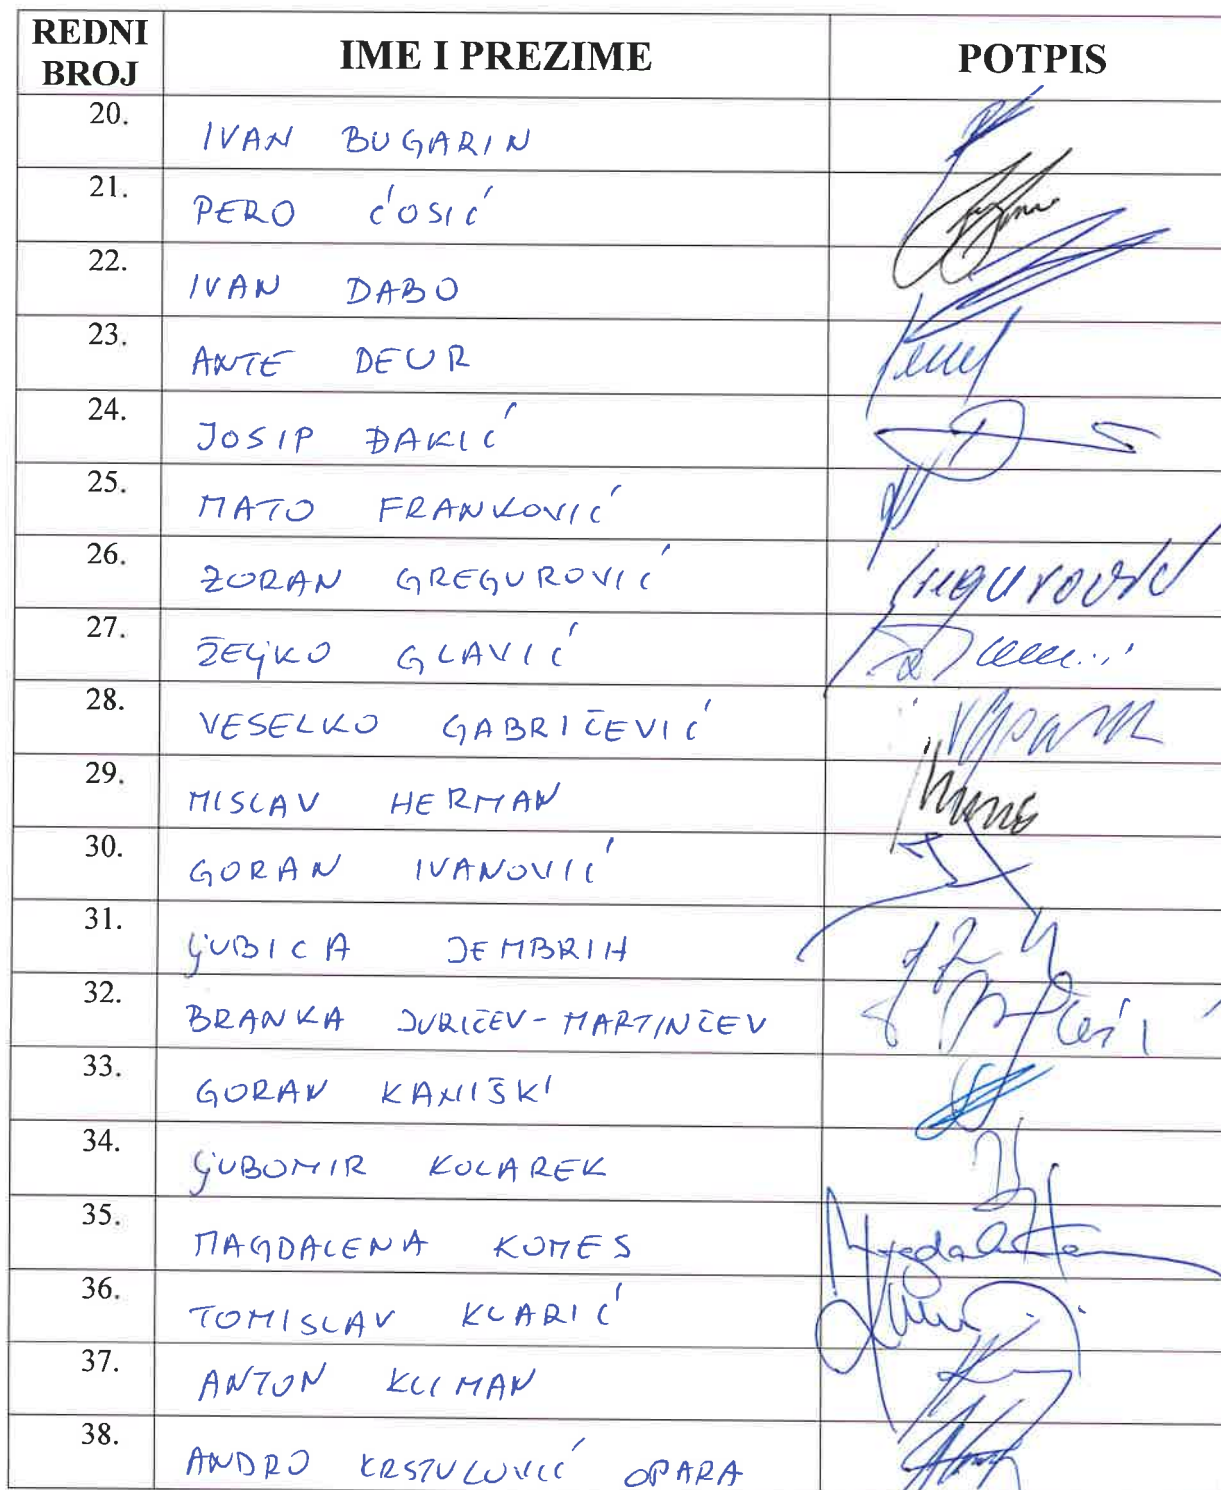 REDNI BROJ IME I PREZIME POTPIS
20. IVAN BUGARIN
21. PERO ĆOSIĆ
22. IVAN DABO
23. ANTE DEUR
24. JOSIP ĐAKIĆ
25. MATO FRANKOVIĆ
26. ZORAN GREGUROVIĆ
27. ŽELJKO GLAVIĆ
28. VESELKO GABRIČEVIĆ
29. MISLAV HERMAN
30. GORAN IVANOVIĆ
31. LJUBICA JEMBRIH
32. BRANKA JURIČEV-MARTINČEV
33. GORAN KANIŠKI
34. LJUBOMIR KOLAREK
35. MAGDALENA KOMES
36. TOMISLAV KLARIĆ
37. ANTON KLIMAN
38. ANDRO KRSTULOVIĆ OPARA